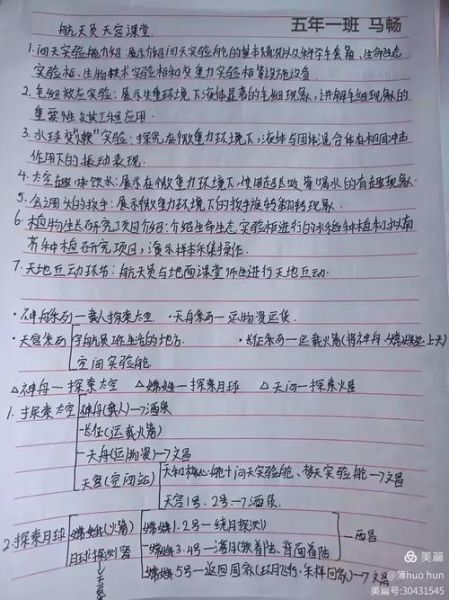 五年一班 马畅
航天员天宫课堂
1.问天实验舱介绍:展示介绍问天实验舱的基本情况以及科学手套箱、生命生态
实验柜、生物技术实验柜和变重力实验柜等设施设备.
2.毛细效应实验:展示失重环境下液体显著的毛细现象,讲解毛细现象的
重要性及其工程应用.
3.水球变"懒"实验:探究在微重力环境下,液体与固体混合体在相同冲击
作用下的振动表现.
4.太空趣味饮水:展示在微重力环境下,使用超长吸管喝水的有趣现象.
5.会调头的扳手:展示微重力环境下的扳手旋转翻转现象.
6.植物生长研究项目介绍:介绍生命生态实验柜进行的水稻种植和拟南
芥种植研究项目,演示样本采集操作.
7.天地互动环节:航天员与地面课堂师生进行天地互动.
·神舟系列—载人探索太空 ·天舟系列—运物资运货.
·天宫系列 宇航员生活的地方 ·长征系列—运载火箭(将神舟、嫦娥送上天)
空间实验舱
△神舟—探索太空 △嫦娥—探索月球 △天问—探索火星
1.探索太空 神舟(载人)→酒泉
长征(运载火箭)
天舟(运物资)→文昌
天宫(空间站) 天和核心舱+问天实验舱、梦天实验舱→文昌
天宫1号.2号→酒泉.
2.探索月球 嫦娥(火箭) 嫦娥1.2号—绕月探测
月球探测器 嫦娥3.4号—落月(软着陆、背面着陆) —西昌
嫦娥5号—返回国家(环月飞行、采样回家)→文昌
美篇
@薄huo hun
美篇号:30431545